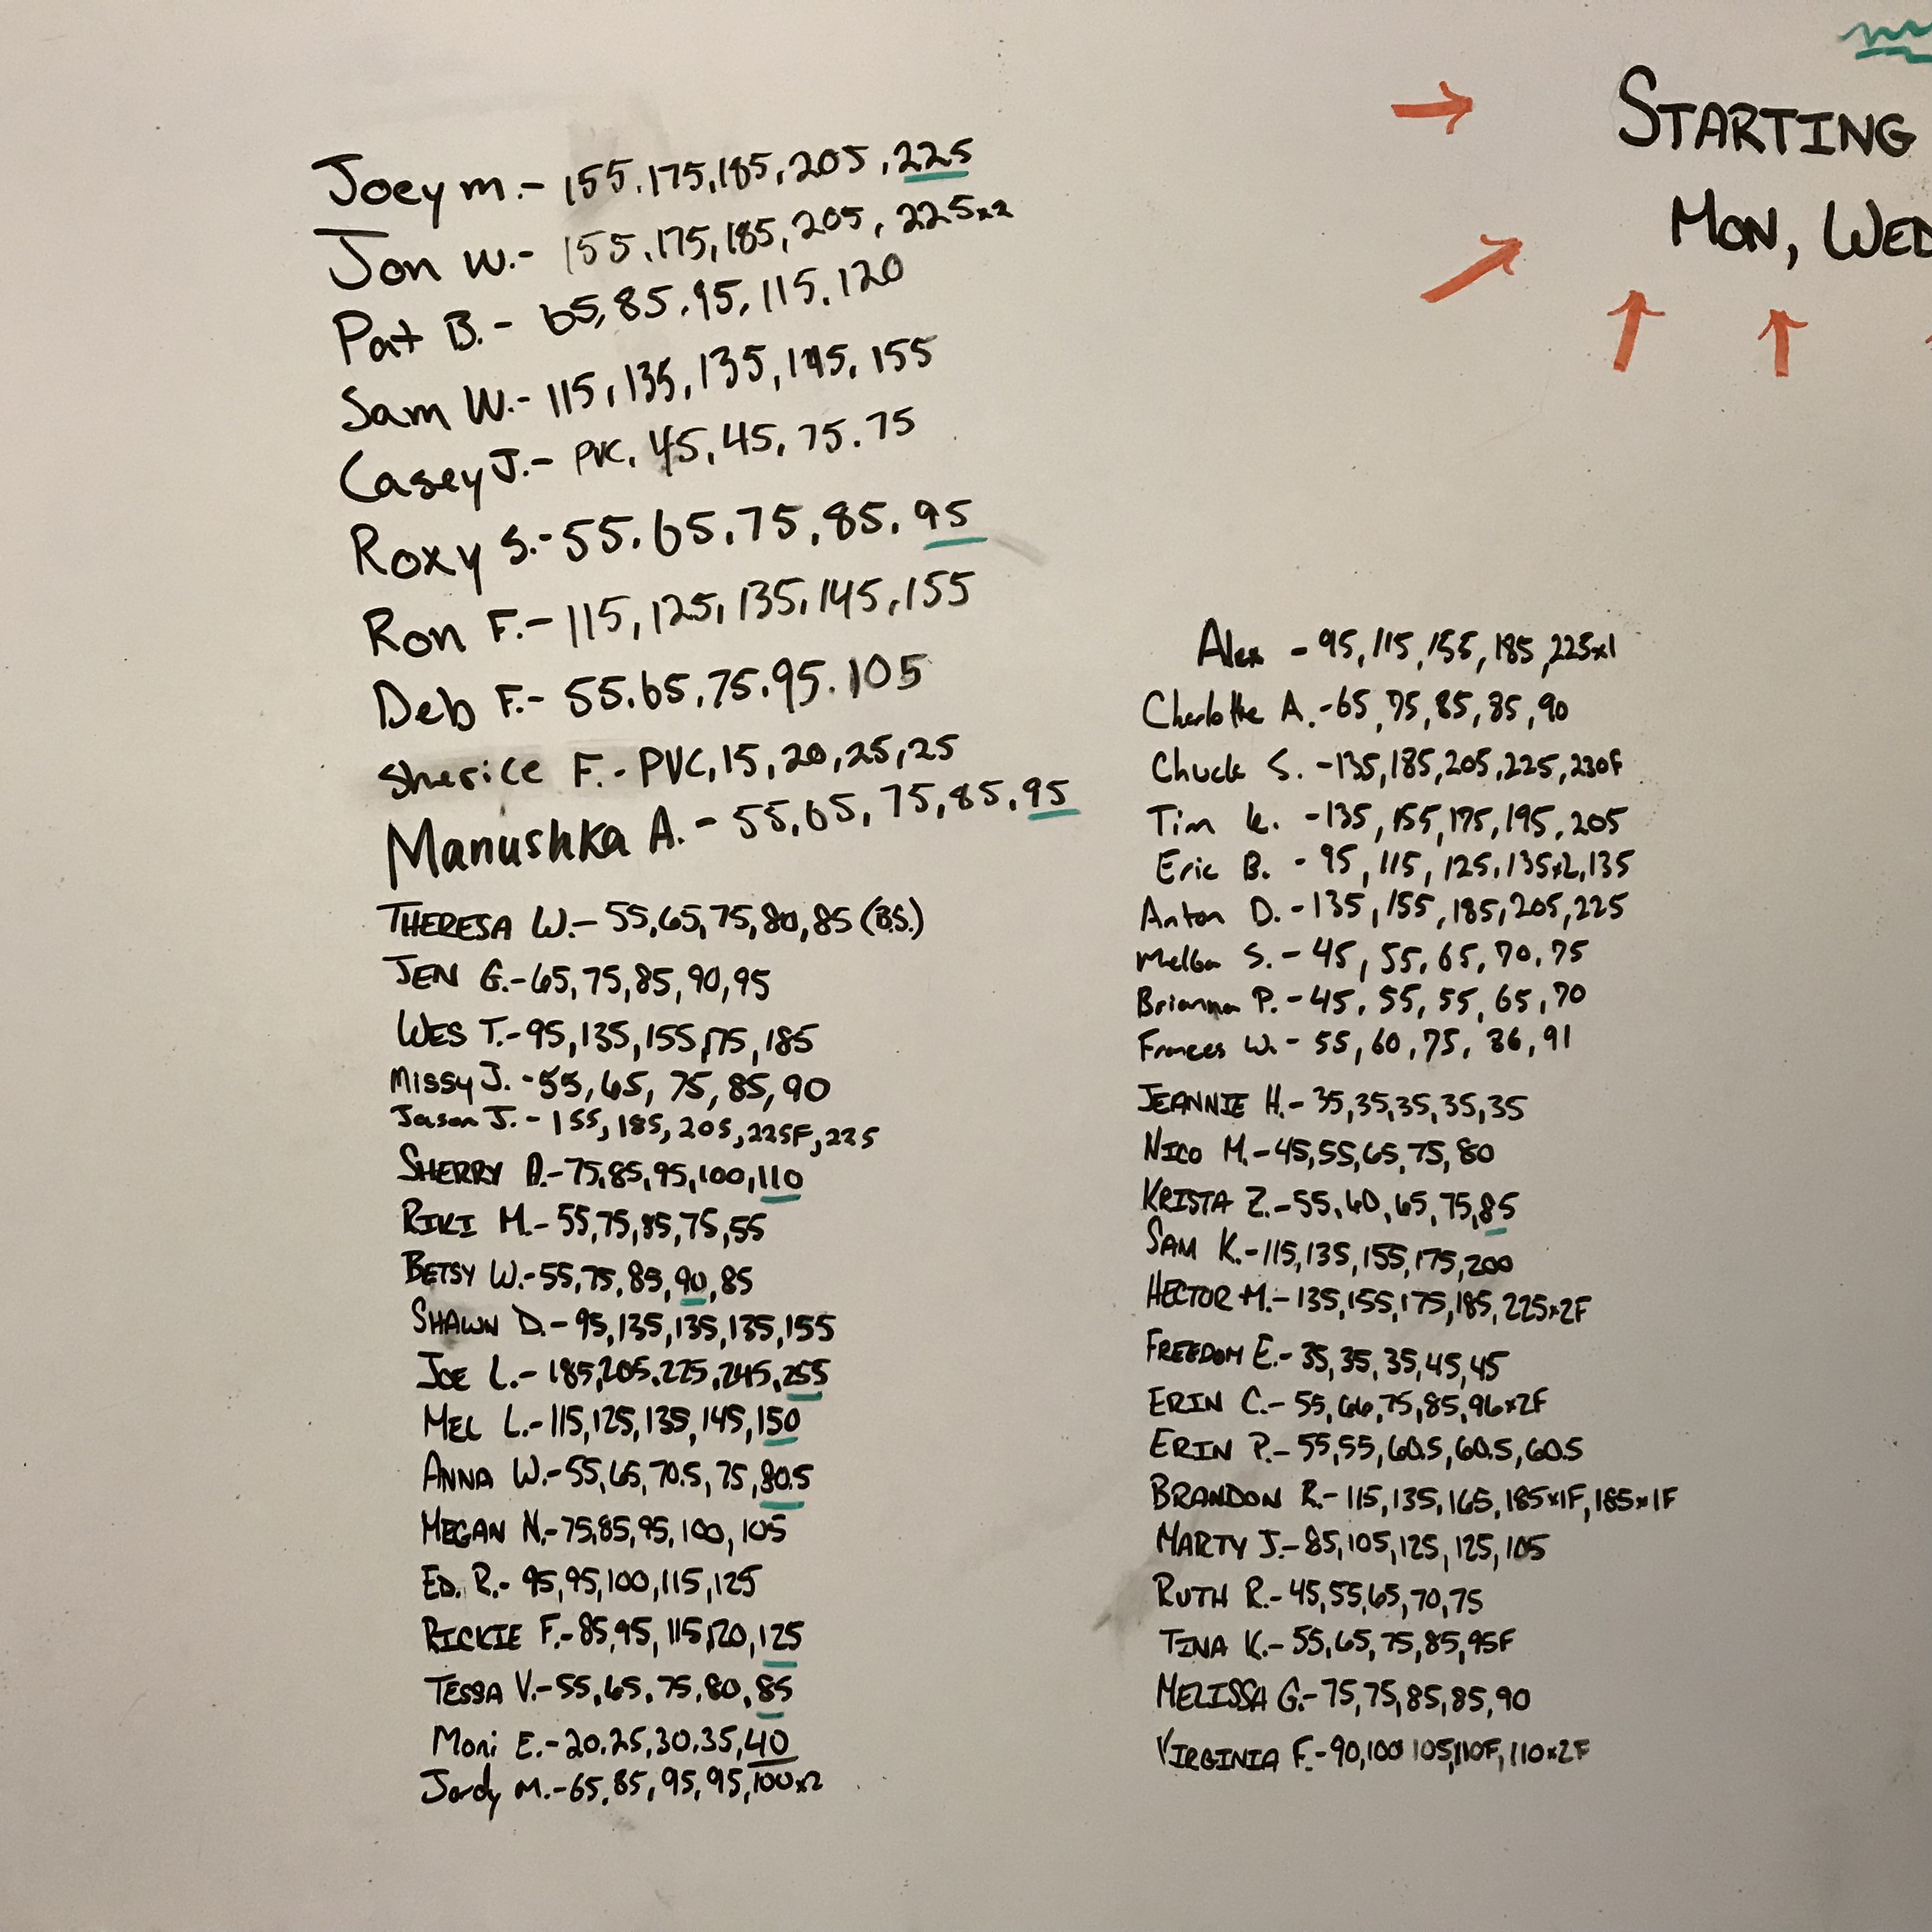 Joey M.- 155, 175, 185, 205, 225
Jon W.- 155, 175, 185, 205, 225x2
Pat B.- 65, 85, 95, 115, 120
Sam W.- 115, 135, 135, 145, 155
Casey J.- PVC, 45, 45, 75, 75
Roxy S.- 55, 65, 75, 85, 95
Ron F.- 115, 125, 135, 145, 155
Deb F.- 55, 65, 75, 95, 105
Sherice F.- PVC, 15, 20, 25, 25
Manushka A.- 55, 65, 75, 85, 95
THERESA W.- 55, 65, 75, 80, 85 (B.S.)
JEN G.- 65, 75, 85, 90, 95
WES T.- 95, 135, 155, 175, 185
MISSY J.- 55, 65, 75, 85, 90
Jason J.- 155, 185, 205, 225F, 225
SHERRY A.- 75, 85, 95, 100, 110
RIKI M.- 55, 75, 85, 75, 55
BETSY W.- 55, 75, 85, 90, 85
SHAWN D.- 95, 135, 135, 135, 155
JOE L.- 185, 205, 225, 245, 255
MEL L.- 115, 125, 135, 145, 150
ANNA W.- 55, 65, 70.5, 75, 80.5
MEGAN N.- 75, 85, 95, 100, 105
ED. R.- 95, 95, 100, 115, 125
RICKIE F.- 85, 95, 115, 120, 125
TESSA V.- 55, 65, 75, 80, 85
Moni E.- 20, 25, 30, 35, 40
Jordy M.- 65, 85, 95, 95, 100x2
STARTING
MON, WED
Alex - 95, 115, 155, 185, 225x1
Charlotte A.- 65, 75, 85, 85, 90
Chuck S. - 135, 185, 205, 225, 230F
Tim K. - 135, 155, 175, 195, 205
Eric B. - 95, 115, 125, 135x2, 135
Anton D. - 135, 155, 185, 205, 225
Melba S. - 45, 55, 65, 70, 75
Brianna P. - 45, 55, 55, 65, 70
Frances W. - 55, 60, 75, 86, 91
JEANNIE H.- 35, 35, 35, 35, 35
NICO M.- 45, 55, 65, 75, 80
KRISTA Z.- 55, 60, 65, 75, 85
SAM K.- 115, 135, 155, 175, 200
HECTOR M.- 135, 155, 175, 185, 225x2F
FREEDOM E.- 35, 35, 35, 45, 45
ERIN C.- 55, 66, 75, 85, 96x2F
ERIN P.- 55, 55, 60.5, 60.5, 60.5
BRANDON R.- 115, 135, 165, 185x1F, 185x1F
MARTY J.- 85, 105, 125, 125, 105
RUTH R.- 45, 55, 65, 70, 75
TINA K.- 55, 65, 75, 85, 95F
MELISSA G.- 75, 75, 85, 85, 90
VIRGINIA F.- 90, 100 105, 110F, 110x2F